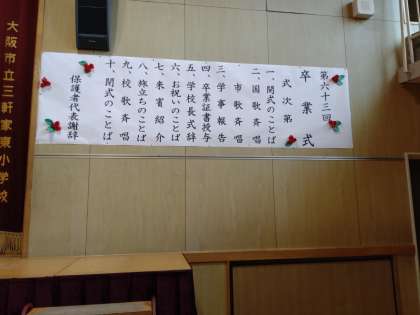 第六十三回
卒業式
式次第
一、開式のことば
二、国歌斉唱
市歌斉唱
三、学事報告
四、卒業証書授与
五、学校長式辞
六、お祝いのことば
七、来賓紹介
八、旅立ちのことば
九、校歌斉唱
十、閉式のことば
保護者代表謝辞
大阪市立三軒家東小学校